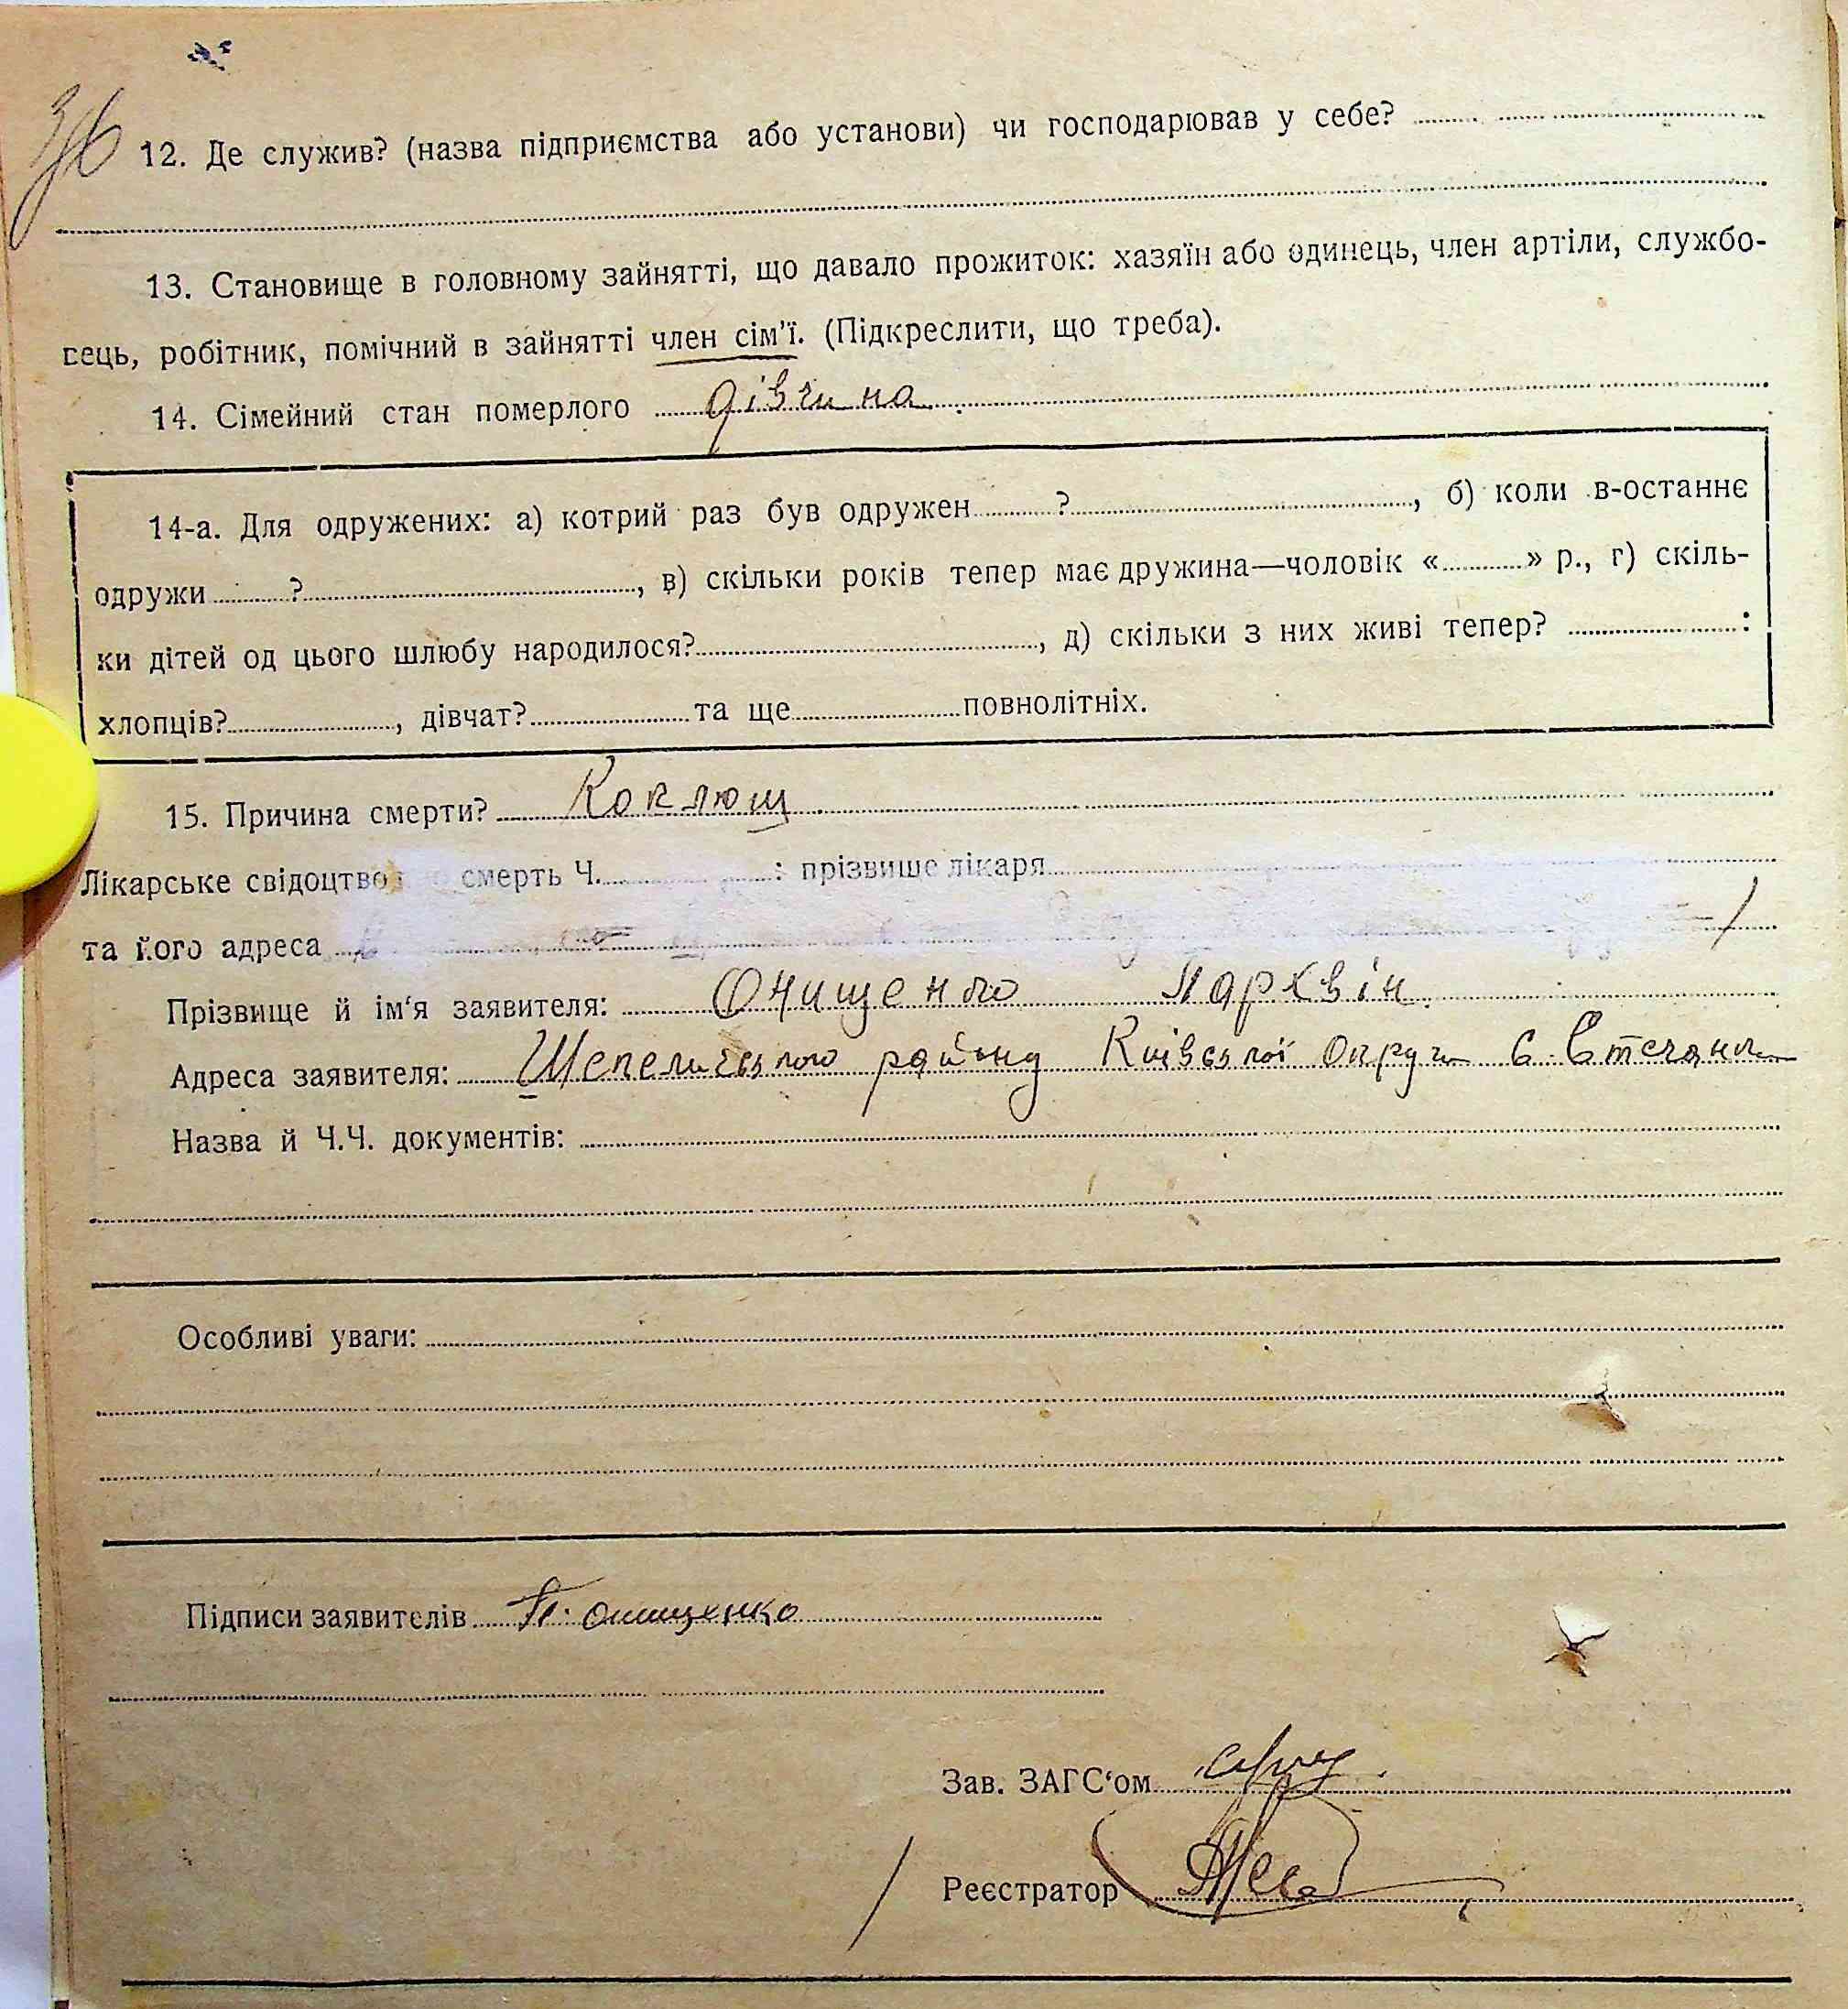 12. Де служив? (назва підприємства або установи) чи господарював у себе?
13. Становище в головному зайнятті, що давало прожиток: хазяїн або одинець, член артіли, службо-
вець, робітник, помічний в зайнятті член сім'ї. (Підкреслити, що треба).
14. Сімейний стан померлого дівчина
14-а. Для одружених: а) котрий раз був одружен ? , б) коли в-останнє
одружи ? , в) скільки років тепер має дружина—чоловік « » р., г) скіль-
ки дітей од цього шлюбу народилося? , д) скільки з них живі тепер? :
хлопців? , дівчат? та ще повнолітніх.
15. Причина смерти? Коклющ
Лікарське свідоцтво смерть Ч. : прізвище лікаря
та його адреса
Прізвище й ім'я заявителя: Онищенко
Адреса заявителя: Шепелицького району Київської Округи с.
Назва й Ч.Ч. документів:
Особливі уваги:
Підписи заявителів П. Онищенко
Зав. ЗАГС'ом
Реєстратор